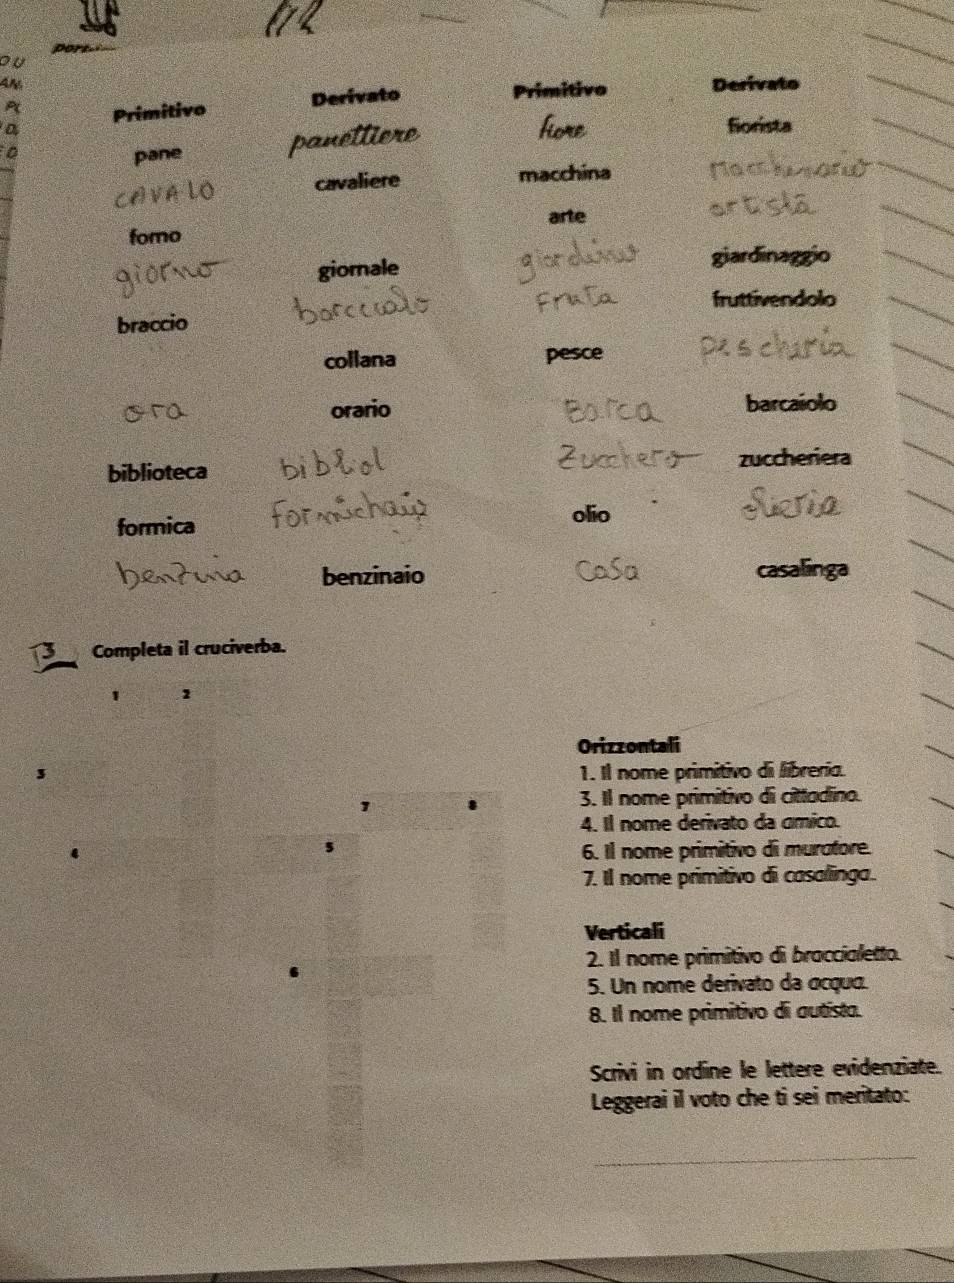 Primitivo Derivato Primitivo Derivato
pane panettiere fiore fiorista
CAVALO cavaliere macchina Macchinario
forno arte artista
giorno giornale giardino giardinaggio
braccio Fruta fruttivendolo
collana pesce pescheria
ora orario Barca barcaiolo
biblioteca bibliol Zucchero zuccheriera
formica olio olieria
benzina benzinaio Casa casalinga
3 Completa il cruciverba.
1 2
3
7 8
4 5
6
Orizzontali
1. Il nome primitivo di libreria.
3. Il nome primitivo di cittadino.
4. Il nome derivato da amico.
6. Il nome primitivo di muratore.
7. Il nome primitivo di casalinga.
Verticali
2. Il nome primitivo di braccialetto.
5. Un nome derivato da acqua.
8. Il nome primitivo di autista.
Scrivi in ordine le lettere evidenziate.
Leggerai il voto che ti sei meritato: